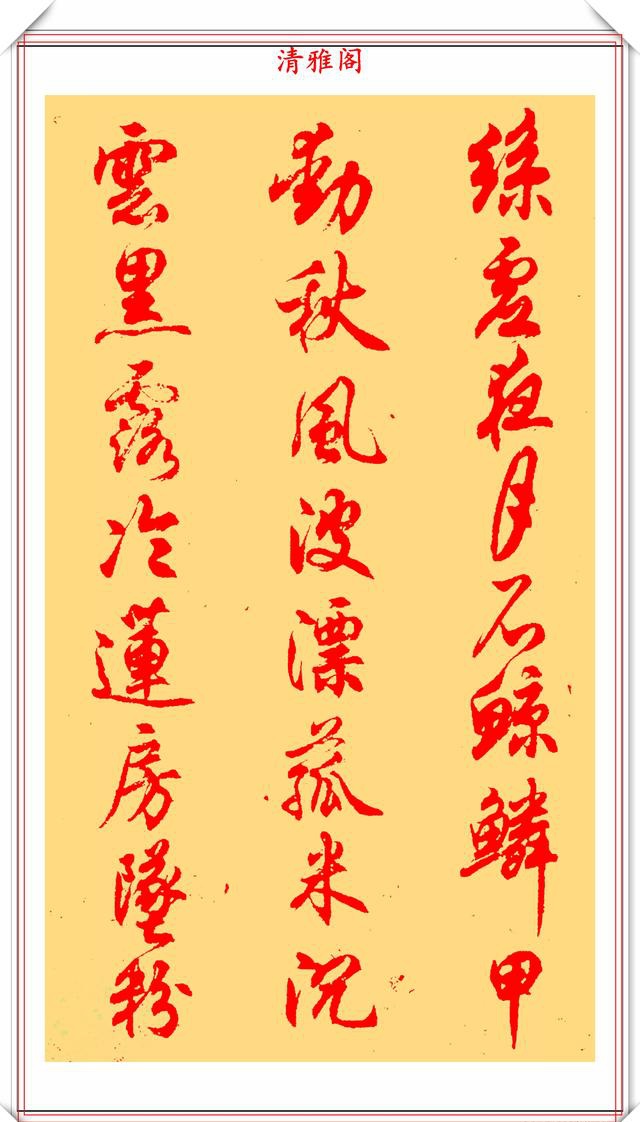 清雅阁
絲虛夜月石鯨鱗甲
動秋風波漂菰米沉
雲黑露冷蓮房墜粉